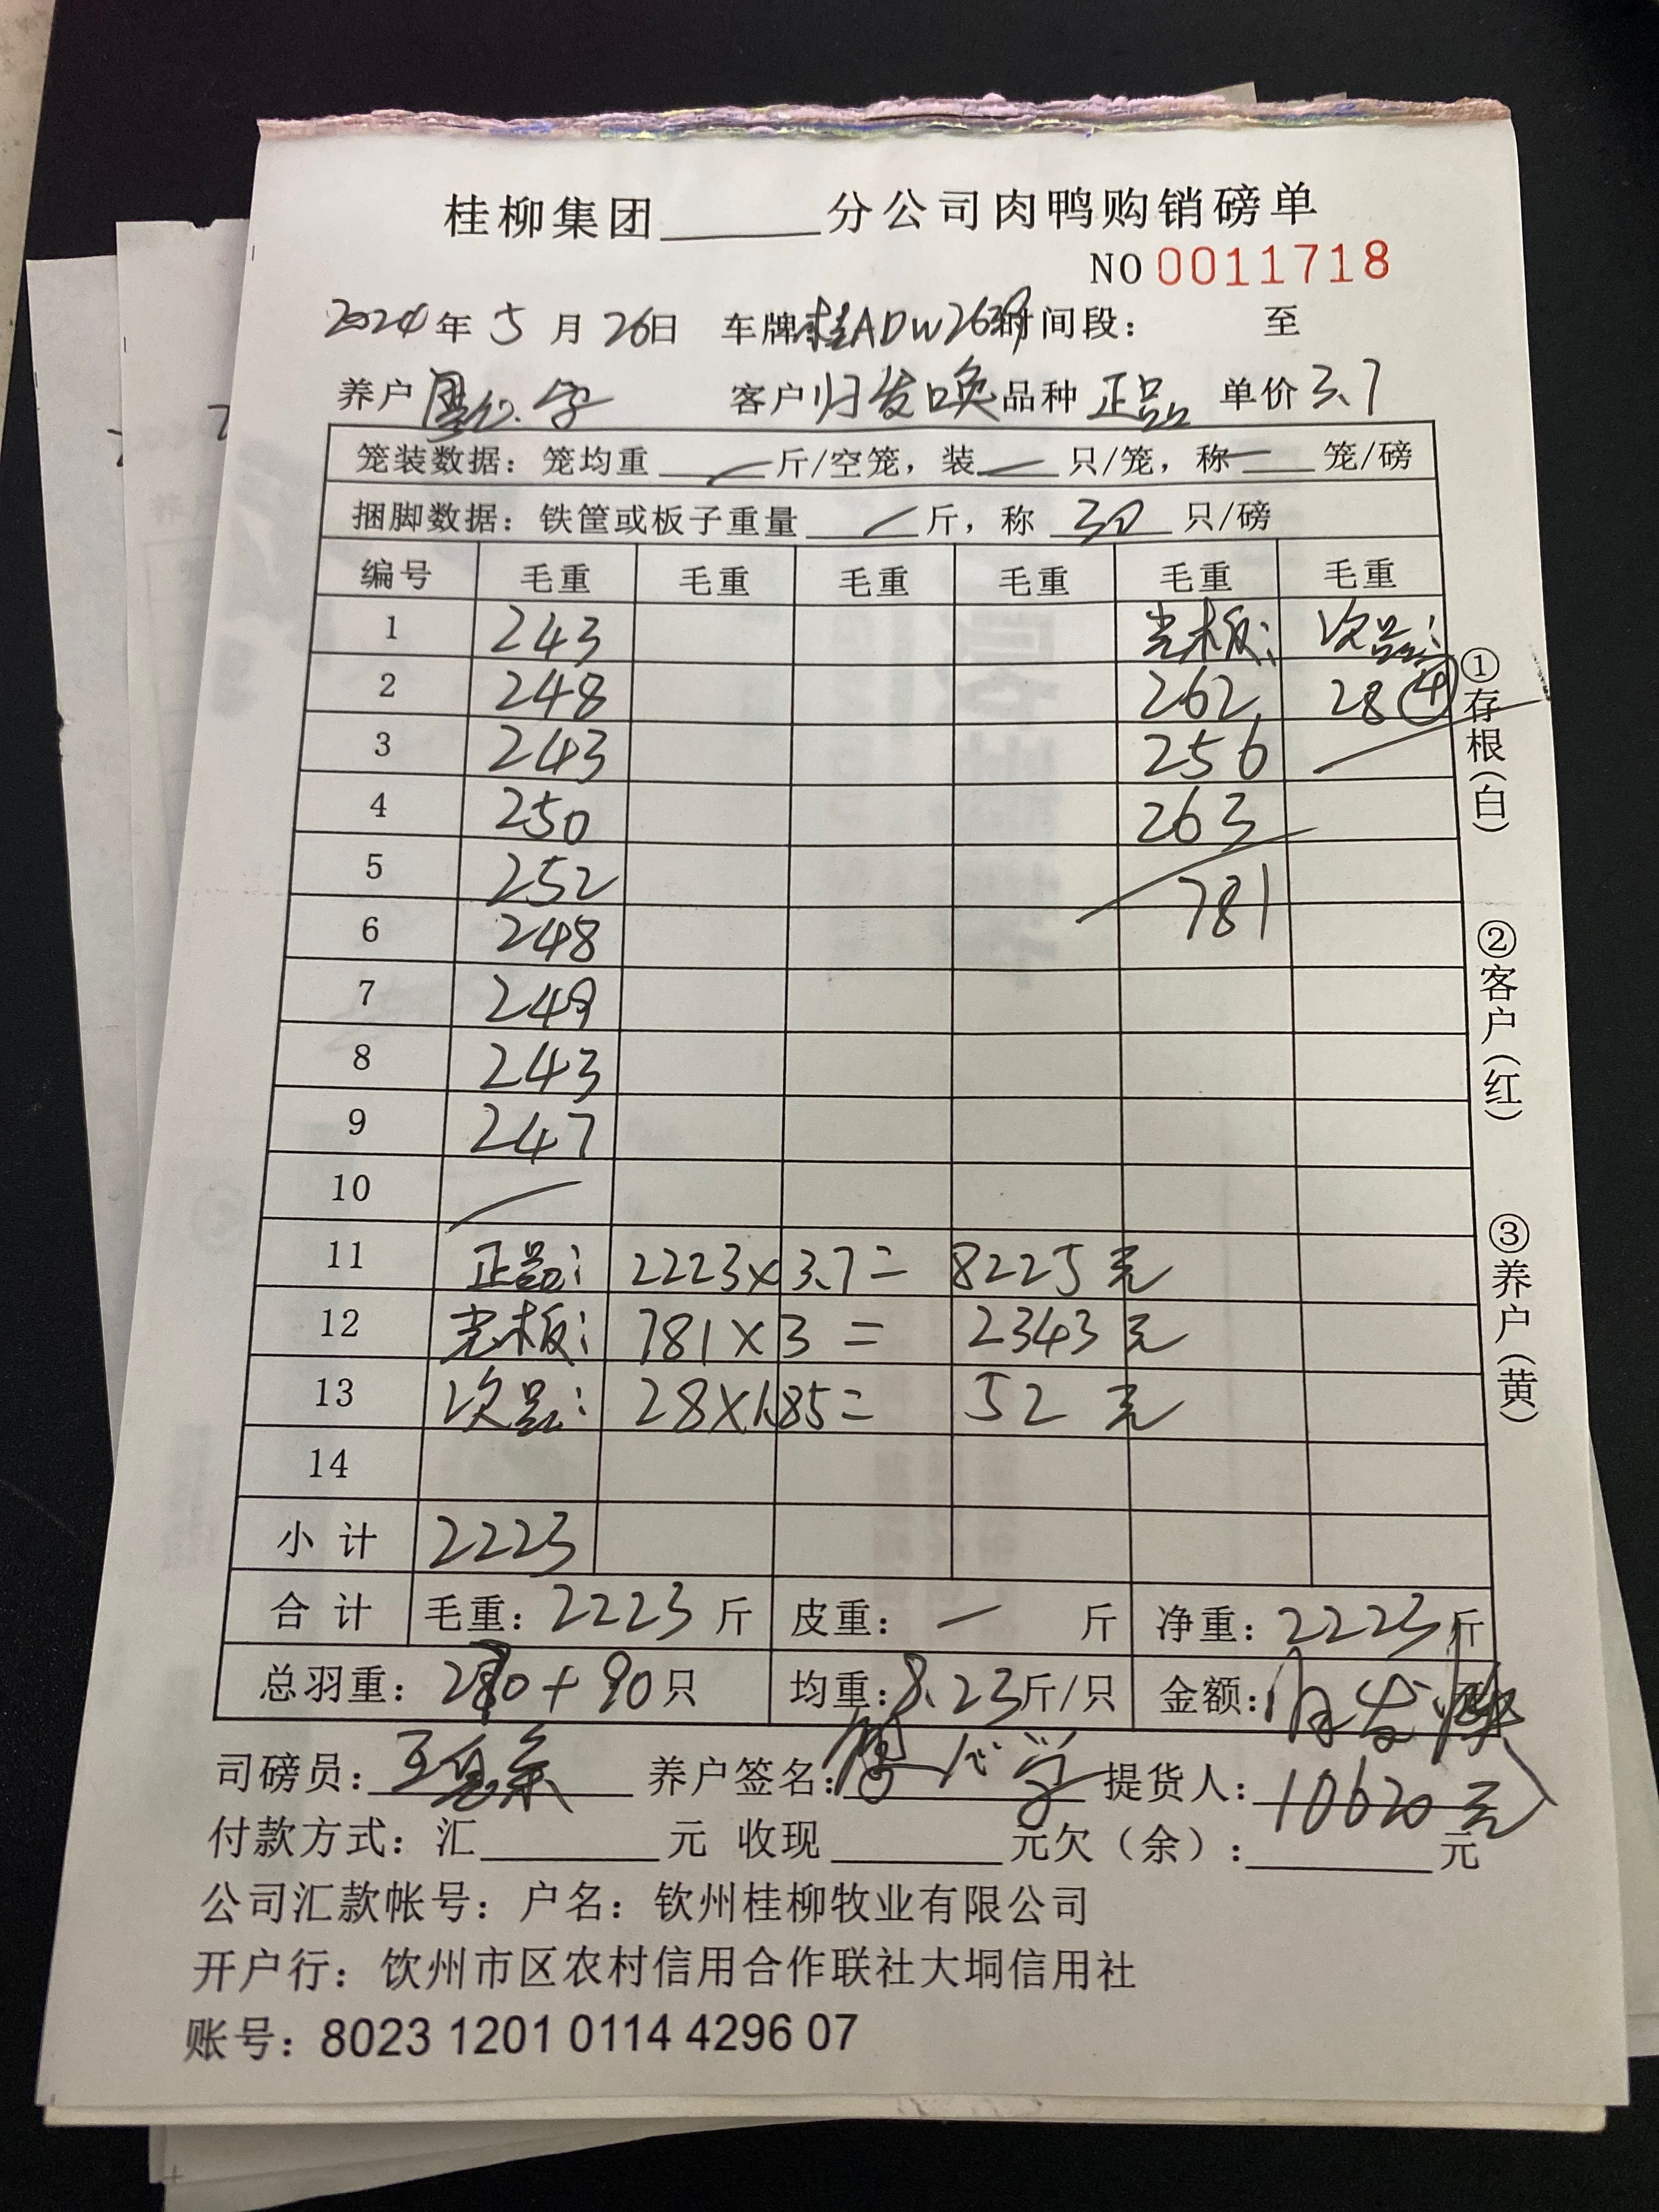 桂柳集团______分公司肉鸭购销磅单
NO 0011718
2024年 5 月 26日 车牌桂ADW26 时间段： 至
养户 客户 归发唤 品种 正品 单价 3.7
笼装数据：笼均重 斤/空笼，装 只/笼，称 笼/磅
捆脚数据：铁筐或板子重量 斤，称 30 只/磅
编号 毛重 毛重 毛重 毛重 毛重 毛重
1 243 光板： 次品：
2 248 262 28 ④
3 243 256
4 250 263
5 252 781
6 248
7 249
8 243
9 247
10
11 正品： 2223×3.7= 8225 元
12 光板： 781×3 = 2343 元
13 次品： 28×1.85= 52 元
14
小计 2223
合计 毛重：2223 斤 皮重：一 斤 净重：2223 斤
总羽重：270+90只 均重：8.23斤/只 金额：
司磅员： 养户签名： 提货人：10620元
付款方式：汇______元 收现______元欠（余）：______元
公司汇款帐号：户名：钦州桂柳牧业有限公司
开户行：饮州市区农村信用合作联社大垌信用社
账号：8023 1201 0114 4296 07
①存根（白）
②客户（红）
③养户（黄）